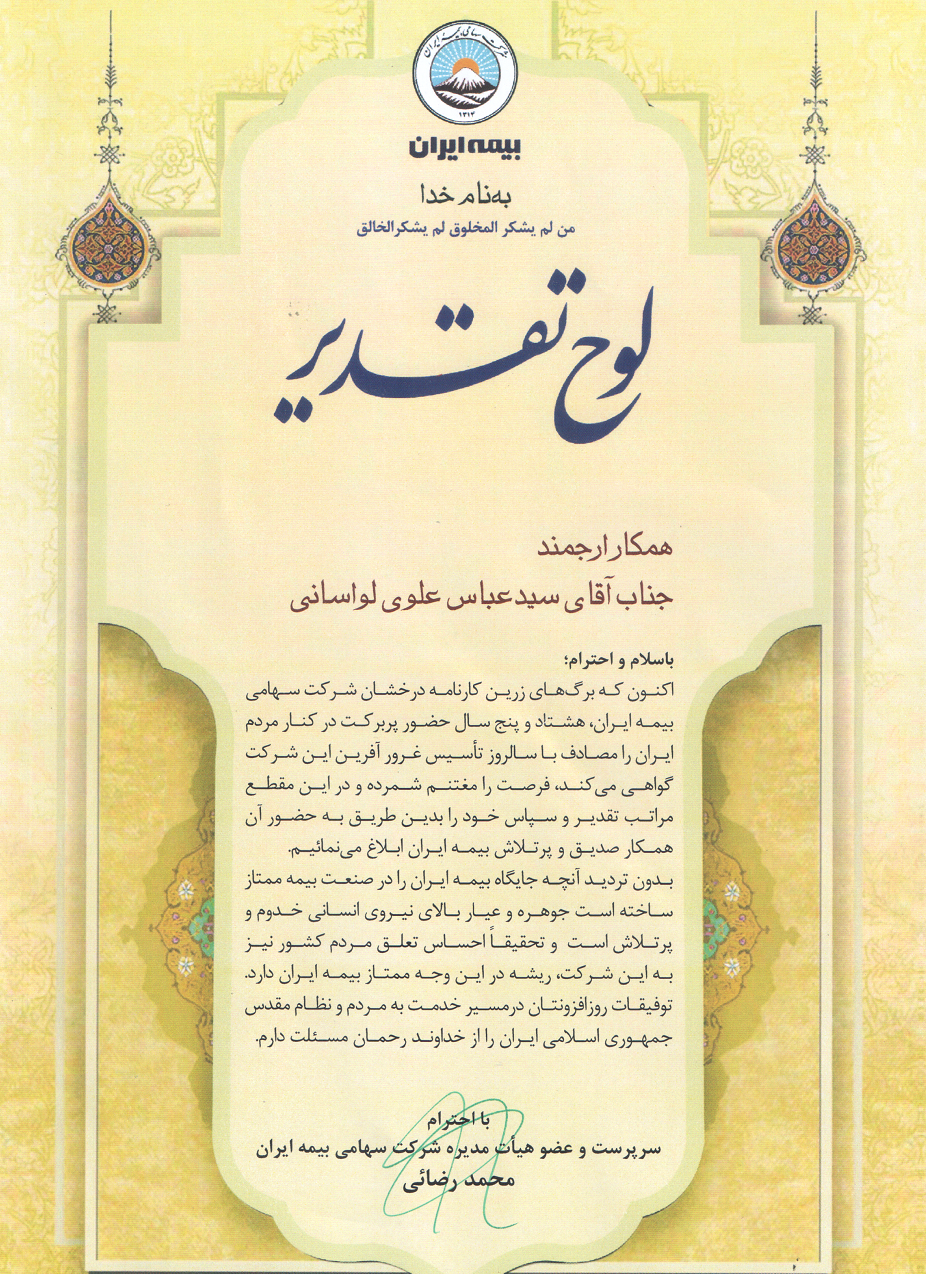 شرکت سهامی بیمه ایران
۱۳۱۴
بیمه ایران
به نام خدا
من لم یشکر المخلوق لم یشکرالخالق
لوح تقدیر
همکار ارجمند
جناب آقای سیدعباس علوی لواسانی
باسلام و احترام؛
اکنون که برگ‌های زرین کارنامه درخشان شرکت سهامی
بیمه ایران، هشتاد و پنج سال حضور پربرکت در کنار مردم
ایران را مصادف با سالروز تأسیس غرور آفرین این شرکت
گواهی می‌کند، فرصت را مغتنم شمرده و در این مقطع
مراتب تقدیر و سپاس خود را بدین طریق به حضور آن
همکار صدیق و پرتلاش بیمه ایران ابلاغ می‌نمائیم.
بدون تردید آنچه جایگاه بیمه ایران را در صنعت بیمه ممتاز
ساخته است جوهره و عیار بالای نیروی انسانی خدوم و
پرتلاش است و تحقیقاً احساس تعلق مردم کشور نیز
به این شرکت، ریشه در این وجه ممتاز بیمه ایران دارد.
توفیقات روزافزونتان درمسیر خدمت به مردم و نظام مقدس
جمهوری اسلامی ایران را از خداوند رحمان مسئلت دارم.
با احترام
سرپرست و عضو هیأت مدیره شرکت سهامی بیمه ایران
محمد رضائی